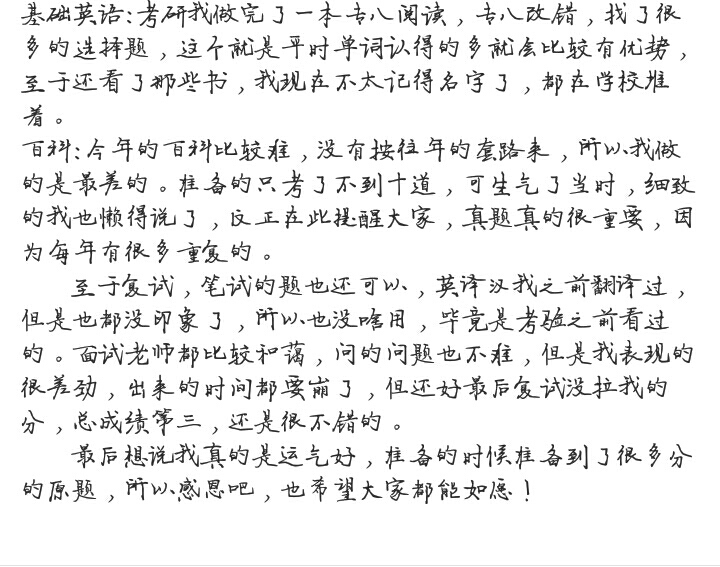 基础英语:考研我做完了一本专八阅读，专八改错，找了很
多的选择题，这个就是平时单词认得的多就会比较有优势，
至于还看了那些书，我现在不太记得名字了，都在学校堆
着。
百科:今年的百科比较难，没有按往年的套路来，所以我做
的是最差的。准备的只考了不到十道，可生气了当时，细致
的我也懒得说了，反正在此提醒大家，真题真的很重要，因
为每年有很多重复的。
至于复试，笔试的题也还可以，英译汉我之前翻译过，
但是也都没印象了，所以也没啥用，毕竟是考验之前看过
的。面试老师都比较和蔼，问的问题也不难，但是我表现的
很差劲，出来的时间都要崩了，但还好最后复试没拉我的
分，总成绩第三，还是很不错的。
最后想说我真的是运气好，准备的时候准备到了很多分
的原题，所以感恩吧，也希望大家都能如愿！